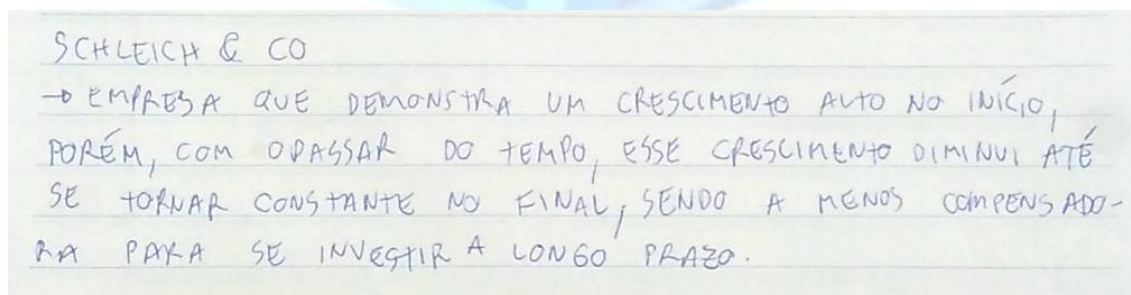 SCHLEICH & CO
→ EMPRESA QUE DEMONSTRA UM CRESCIMENTO ALTO NO INÍCIO,
PORÉM, COM O PASSAR DO TEMPO, ESSE CRESCIMENTO DIMINUI ATÉ
SE TORNAR CONSTANTE NO FINAL, SENDO A MENOS COMPENSADO-
RA PARA SE INVESTIR A LONGO PRAZO.